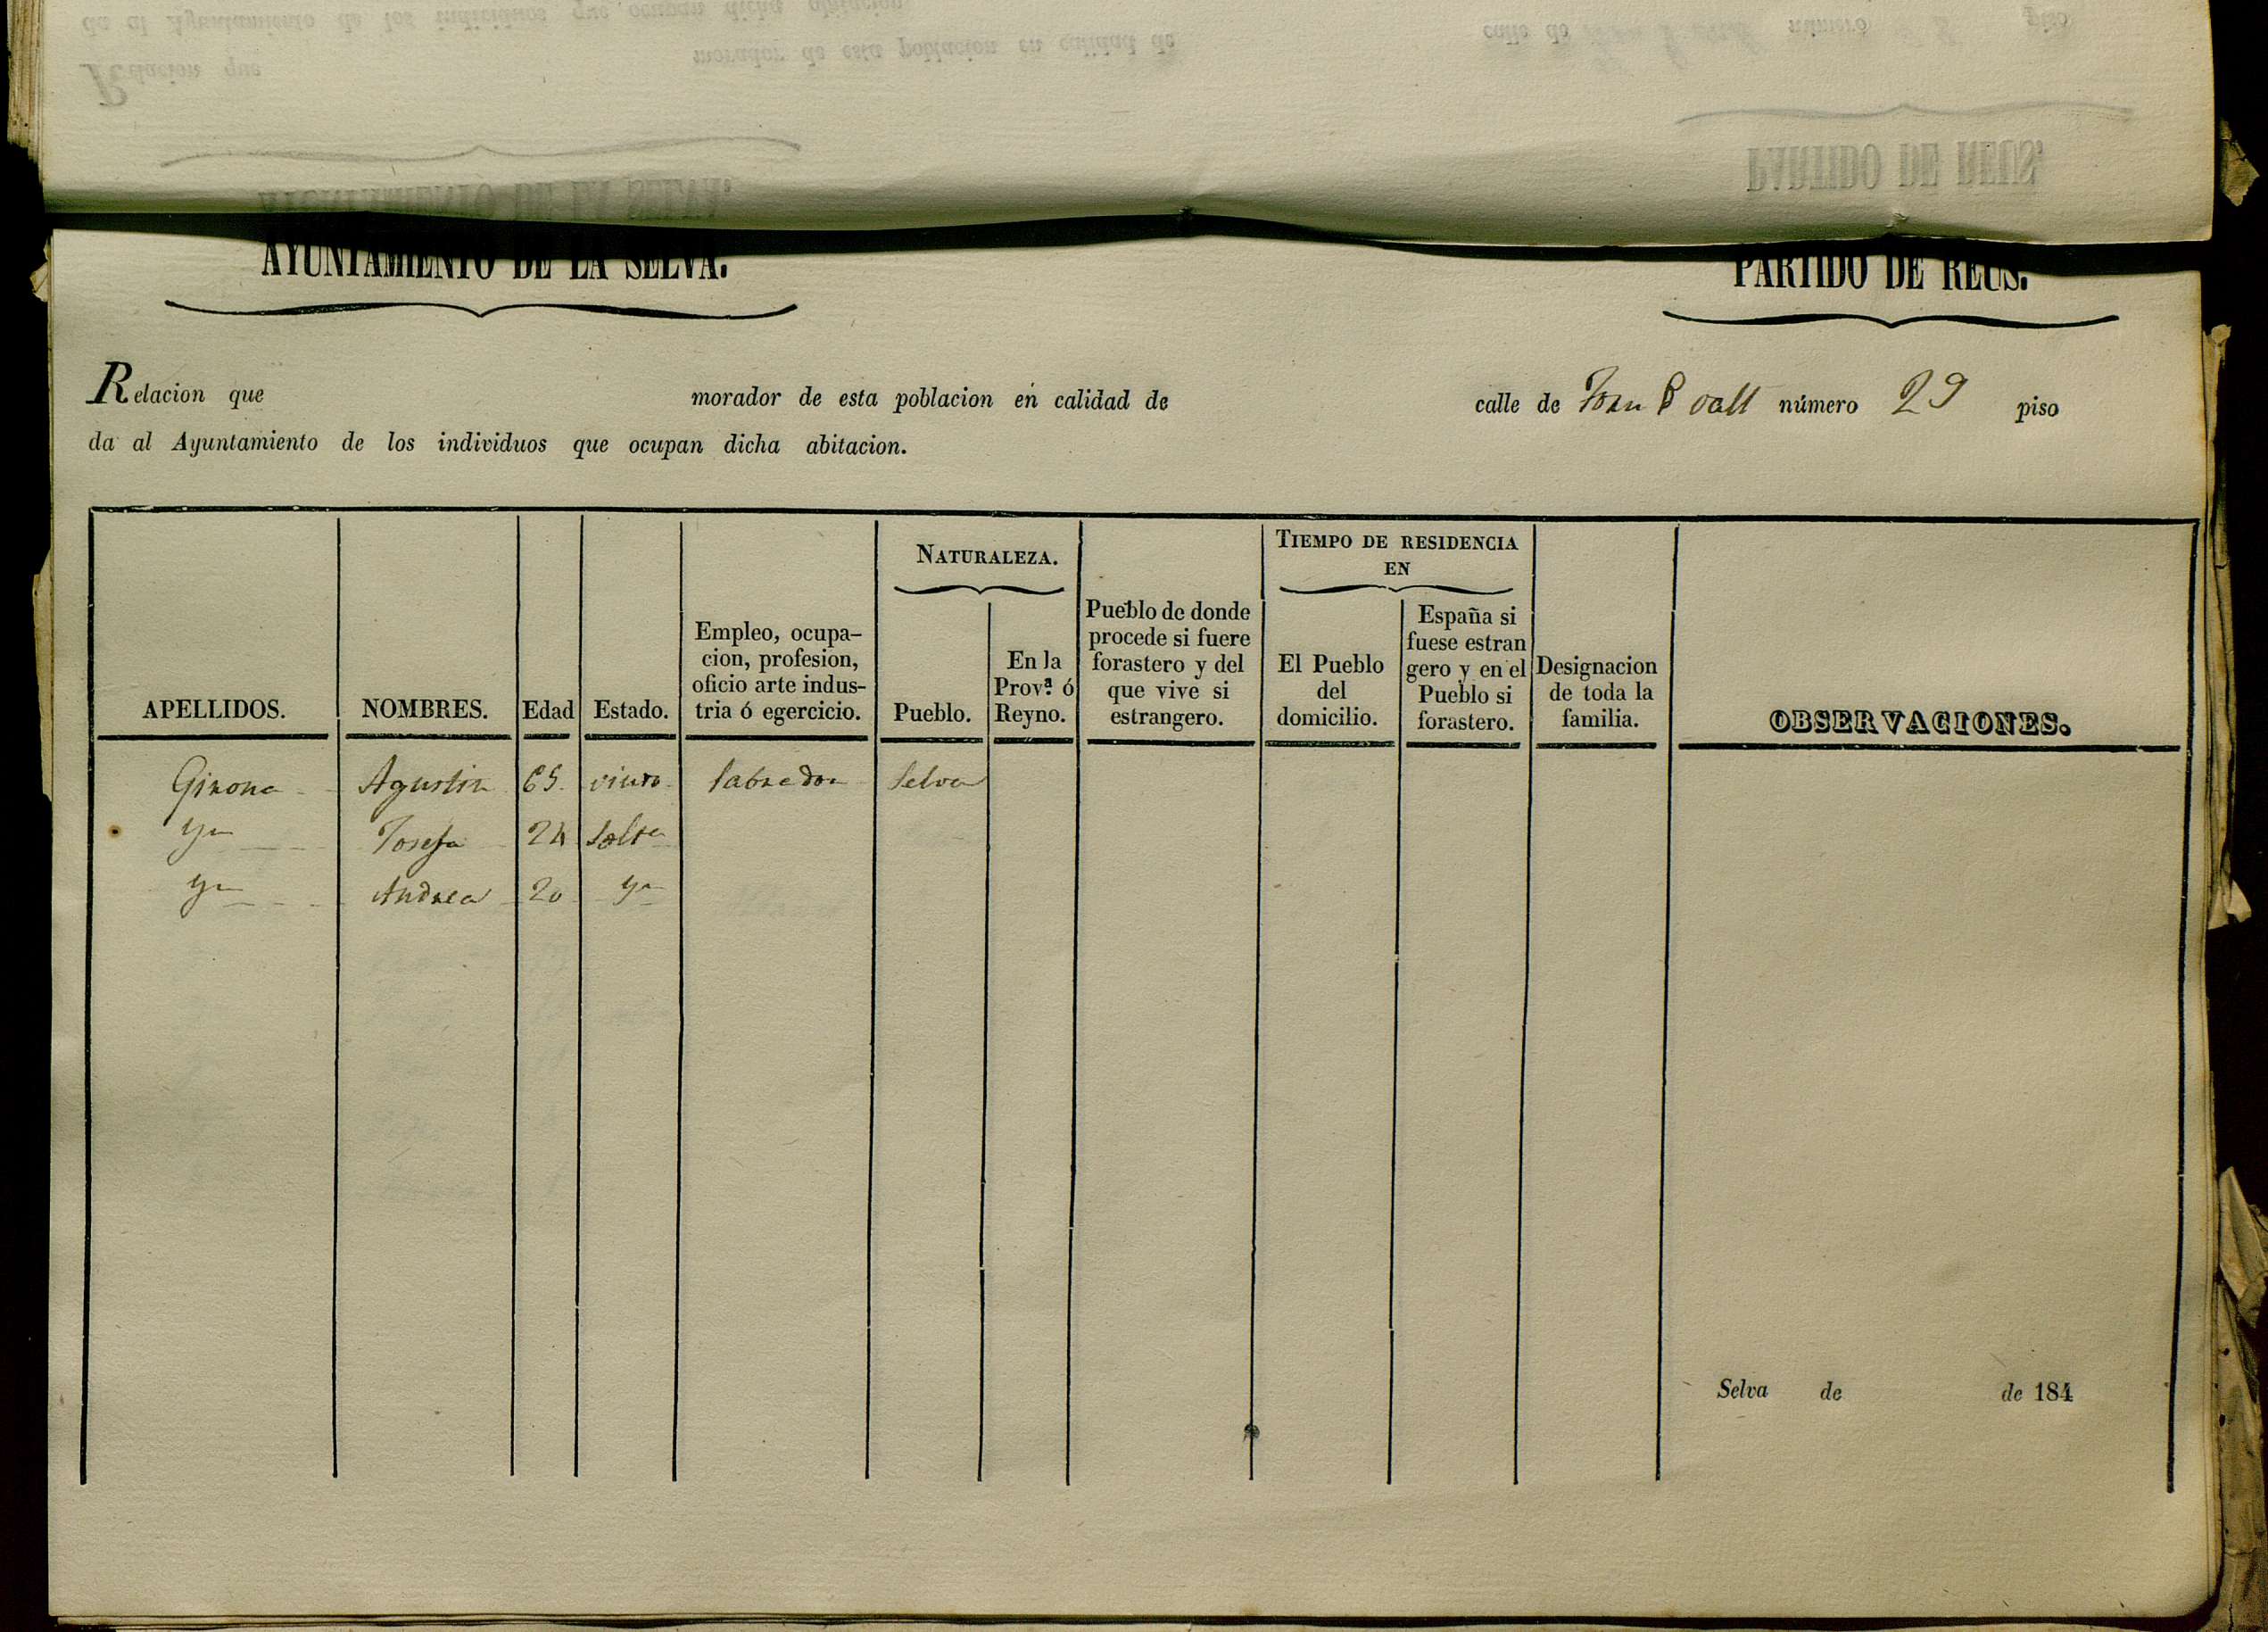 AYUNTAMIENTO DE LA SELVA.
PARTIDO DE REUS.
Relacion que morador de esta poblacion en calidad de calle de número 29 piso
da al Ayuntamiento de los individuos que ocupan dicha abitacion.
APELLIDOS.
NOMBRES.
Edad
Estado.
Empleo, ocupa-
cion, profesion,
oficio arte indus-
tria ó egercicio.
NATURALEZA.
Pueblo.
En la
Prov.ª ó
Reyno.
Pueblo de donde
procede si fuere
forastero y del
que vive si
estrangero.
TIEMPO DE RESIDENCIA
EN
El Pueblo
del
domicilio.
España si
fuese estran
gero y en el
Pueblo si
forastero.
Designacion
de toda la
familia.
OBSERVACIONES.
Girona Agustin 65 viudo labrador Selva
Yn Josefa 24 Solta
Yn Andrea 20 Yn
Selva de de 184